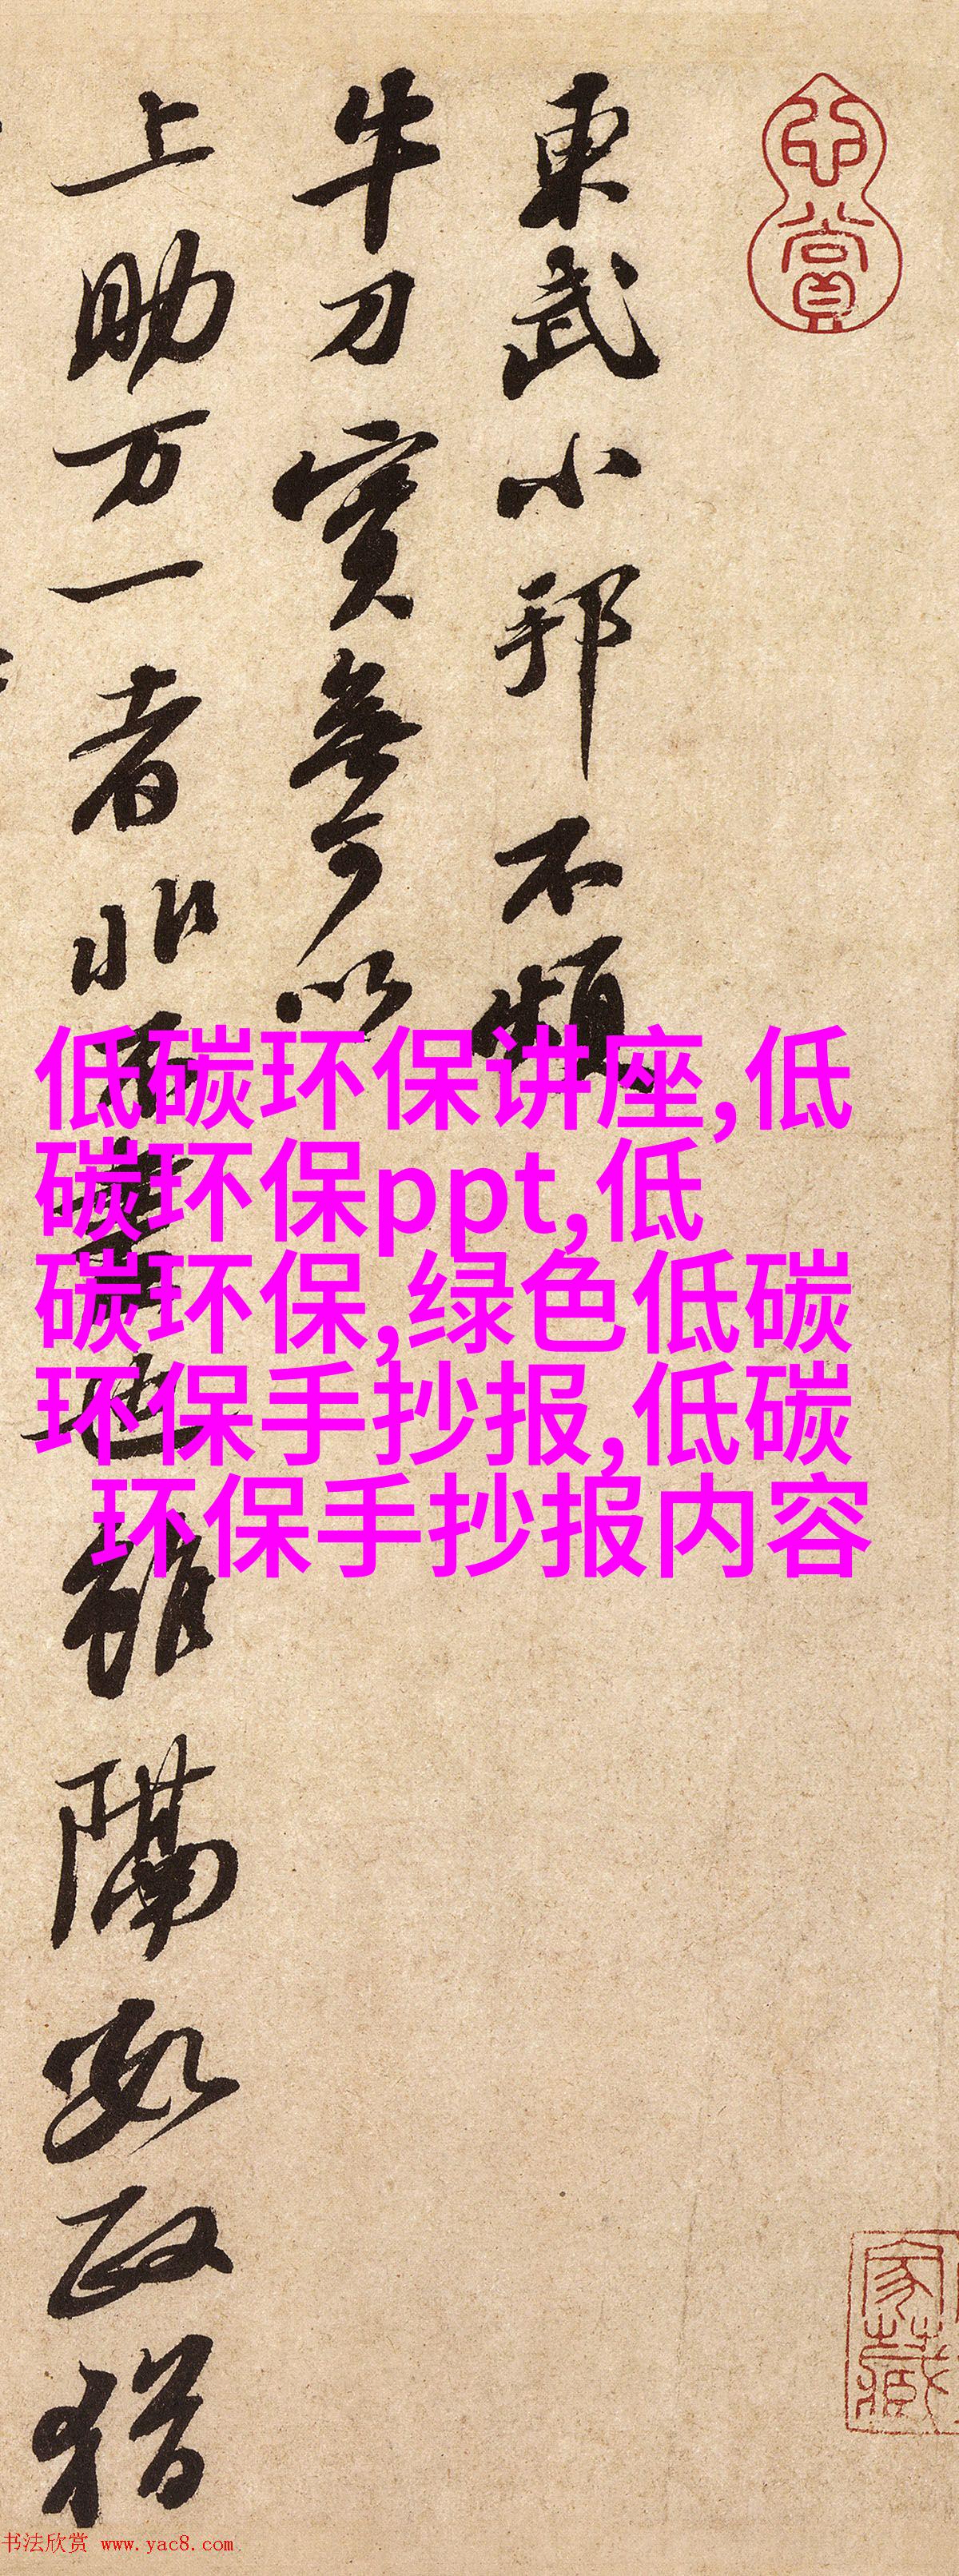 心賞
家藏
東武小邦不煩
牛刀實無可以
上助万一者非不也雖隔數政猶
低碳环保讲座,低
碳环保ppt,低
碳环保,绿色低碳
环保手抄报,低碳
环保手抄报内容
书法欣赏 www.yac8.com